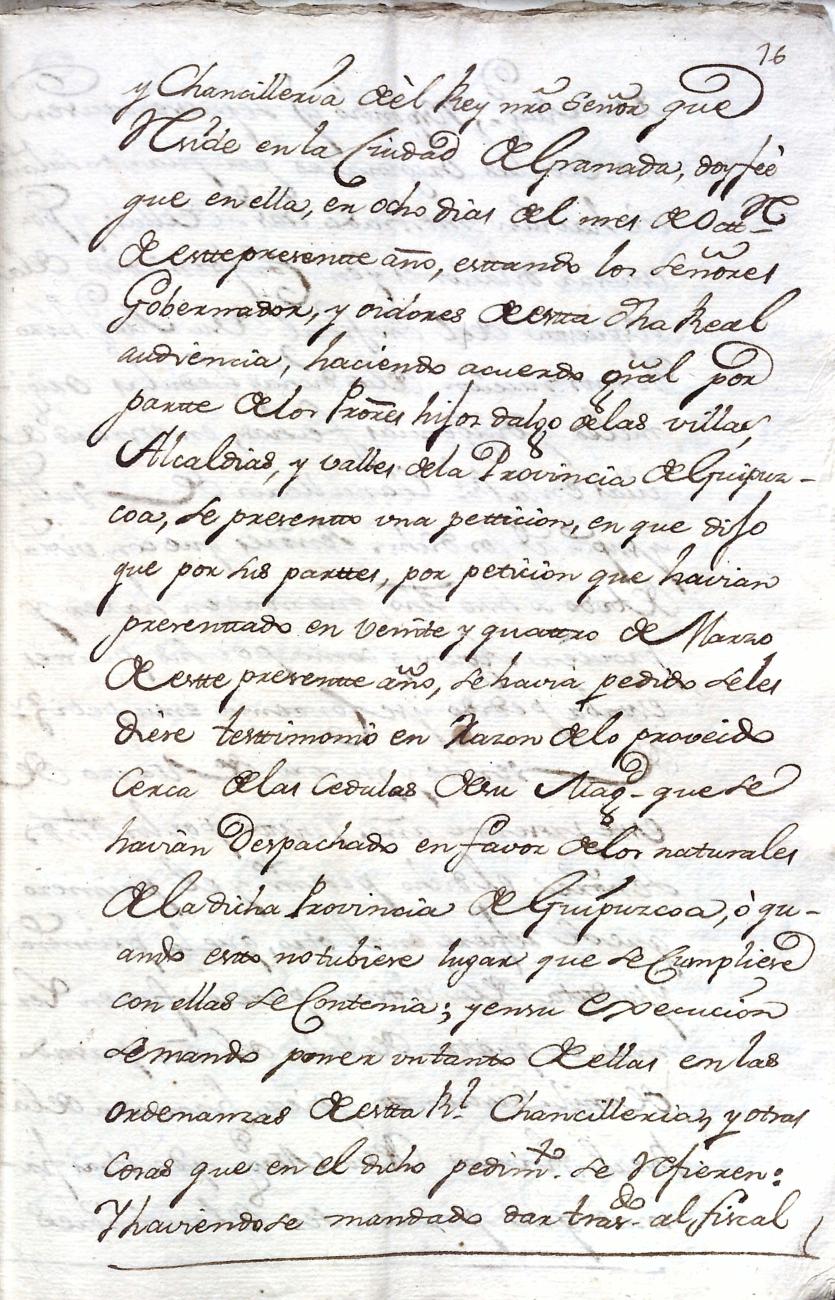 16
y Chancilleria dèl Rey nrõ Señor que
Reside en la Ciudad de Granada, doy feè
que en ella, en ocho dias del mes de Octtre
de estte presentte año, esttando los Señores
Gobernador, y oidores de estta dha Real
audiencia, haciendo acuerdo gral por
partte de los Prores hijos dalgo de las villas,
Alcaldias, y valles de la Provincia de Guipuz-
coa, se presentto una pettiçion, en que dijo
que por sus parttes, por petiçion que havian
presenttado en veinte y quattro de Marzo
de estte presentte año, se havia pedido seles
diese testtimonio en Razon de lo proveido
cerca de las Cedulas de su Magd. que se
havian Despachado en favor de los naturales
de la dicha Provincia de Guipuzcoa, ò qu-
ando estto no tubiese lugar que se Cumpliese
con ellas se Contenia; y en su Execucion
se mando poner un tanto de ellas en las
ordenanzas de estta Rl. Chancilleria, y otras
Cosas que en el dicho pedimto. se Refieren:
Y haviendose mandado dar trasdo. al fiscal